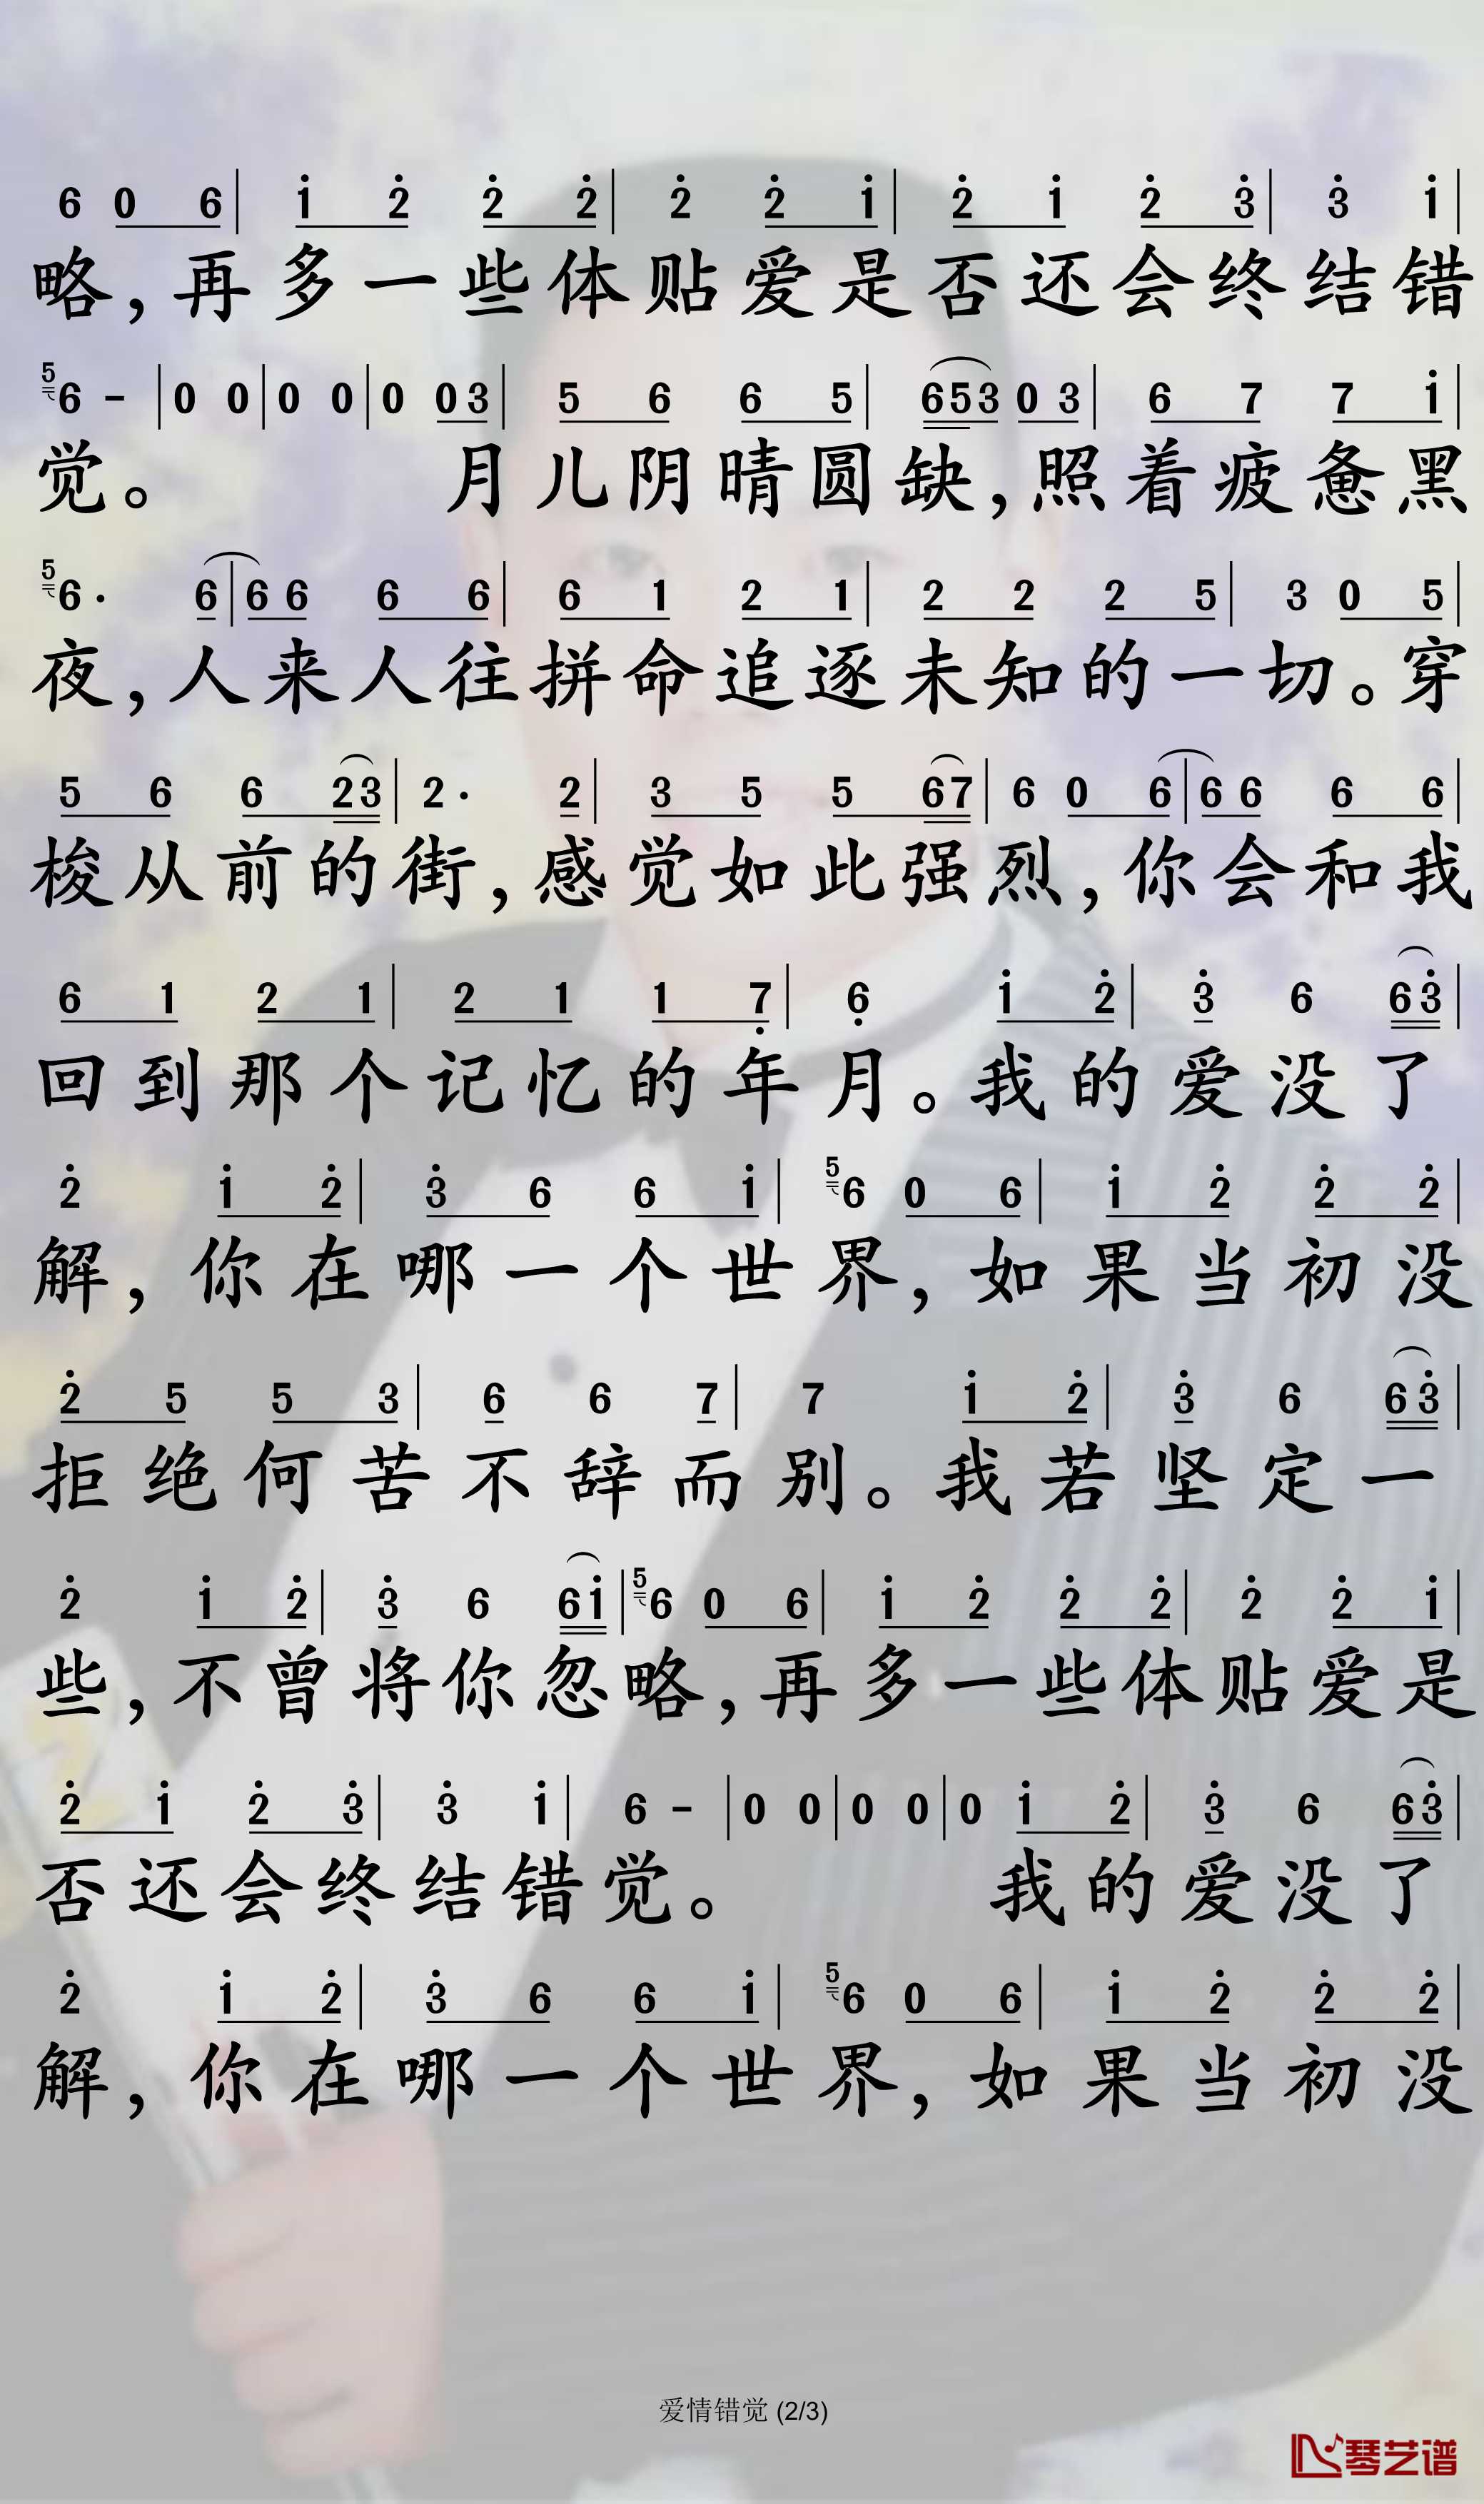 6 0 6 | i 2 2 2 | 2 2 i | 2 i 2 3 | 3 i |
略，再多一些体贴爱是否还会终结错
5 6 - | 0 0 | 0 0 | 0 0 3 | 5 6 6 5 | 6 5 3 0 3 | 6 7 7 i |
觉。 月儿阴晴圆缺，照着疲惫黑
5 6 · 6 | 6 6 6 6 | 6 1 2 1 | 2 2 2 5 | 3 0 5 |
夜，人来人往拼命追逐未知的一切。穿
5 6 6 2 3 | 2 · 2 | 3 5 5 6 7 | 6 0 6 | 6 6 6 6 |
梭从前的街，感觉如此强烈，你会和我
6 1 2 1 | 2 1 1 7 | 6 i 2 | 3 6 6 3 |
回到那个记忆的年月。我的爱没了
2 i 2 | 3 6 6 i | 5 6 0 6 | i 2 2 2 |
解，你在哪一个世界，如果当初没
2 5 5 3 | 6 6 7 | 7 i 2 | 3 6 6 3 |
拒绝何苦不辞而别。我若坚定一
2 i 2 | 3 6 6 i | 5 6 0 6 | i 2 2 2 | 2 2 i |
些，不曾将你忽略，再多一些体贴爱是
2 i 2 3 | 3 i | 6 - | 0 0 | 0 0 | 0 i 2 | 3 6 6 3 |
否还会终结错觉。 我的爱没了
2 i 2 | 3 6 6 i | 5 6 0 6 | i 2 2 2 |
解，你在哪一个世界，如果当初没
爱情错觉 (2/3)
琴艺谱